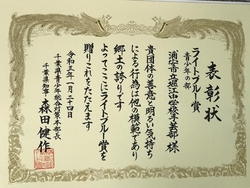 表彰状
ライトブルー賞
青少年の部
浦安市立堀江中学校卓球部 様
貴団体の善意と明るい気持ち
による行為は他の模範であり
郷土の誇りです
よってここにライトブルー賞を
贈りこれをたたえます
令和三年一月二十四日
千葉県青少年総合対策本部長
千葉県知事 森田健作